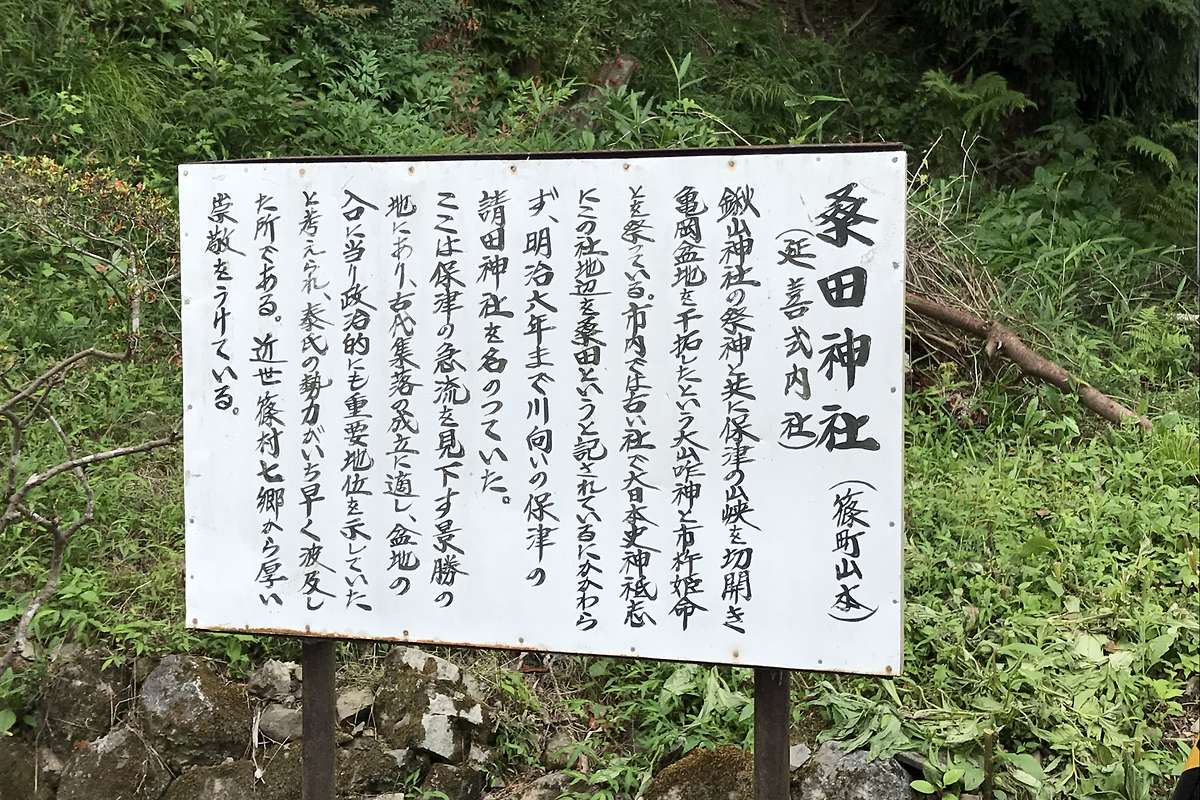 桑田神社 (篠町山本)
(延喜式内社)
鍬山神社の祭神と共に保津の山峡を切開き
亀岡盆地を干拓したという大山咋神と市杵姫命
とを祭っている。市内では古い社で大日本史神祇志
にこの社地辺を桑田というと記されているにかかわら
ず、明治六年まで川向いの保津の
請田神社を名のっていた。
ここは保津の急流を見下す景勝の
地にあり、古代集落の成立に適し、盆地の
入口に当り政治的にも重要地位を示していた
と考えられ、秦氏の勢力がいち早く波及し
た所である。近世篠村七郷から厚い
崇敬をうけている。